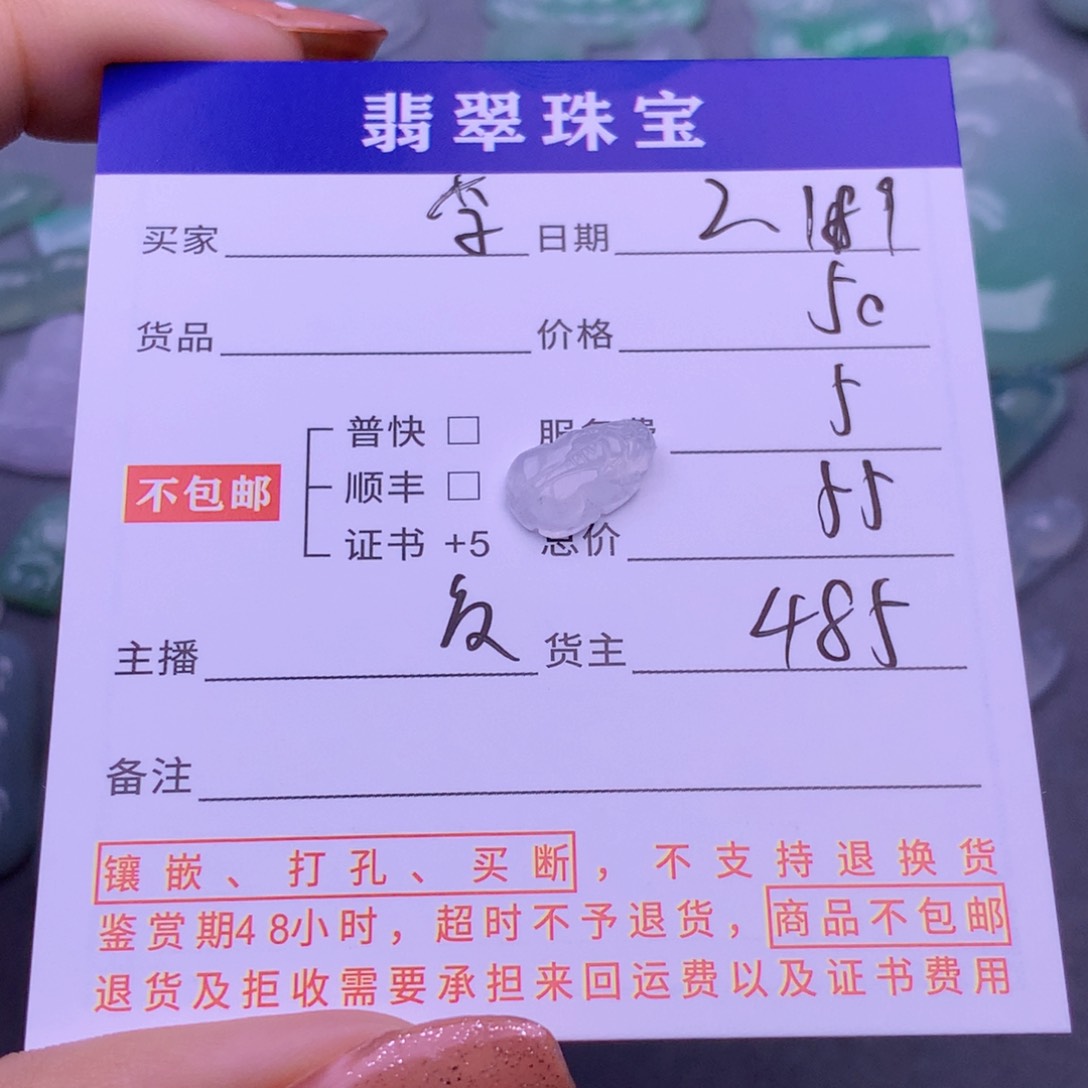 翡翠珠宝
买家 李 日期
货品 价格 50
普快 □ 服务费 5
不包邮 顺丰 □
证书 +5 总价 55
主播 货主 485
备注
镶嵌、打孔、买断，不支持退换货
鉴赏期48小时，超时不予退货，商品不包邮
退货及拒收需要承担来回运费以及证书费用